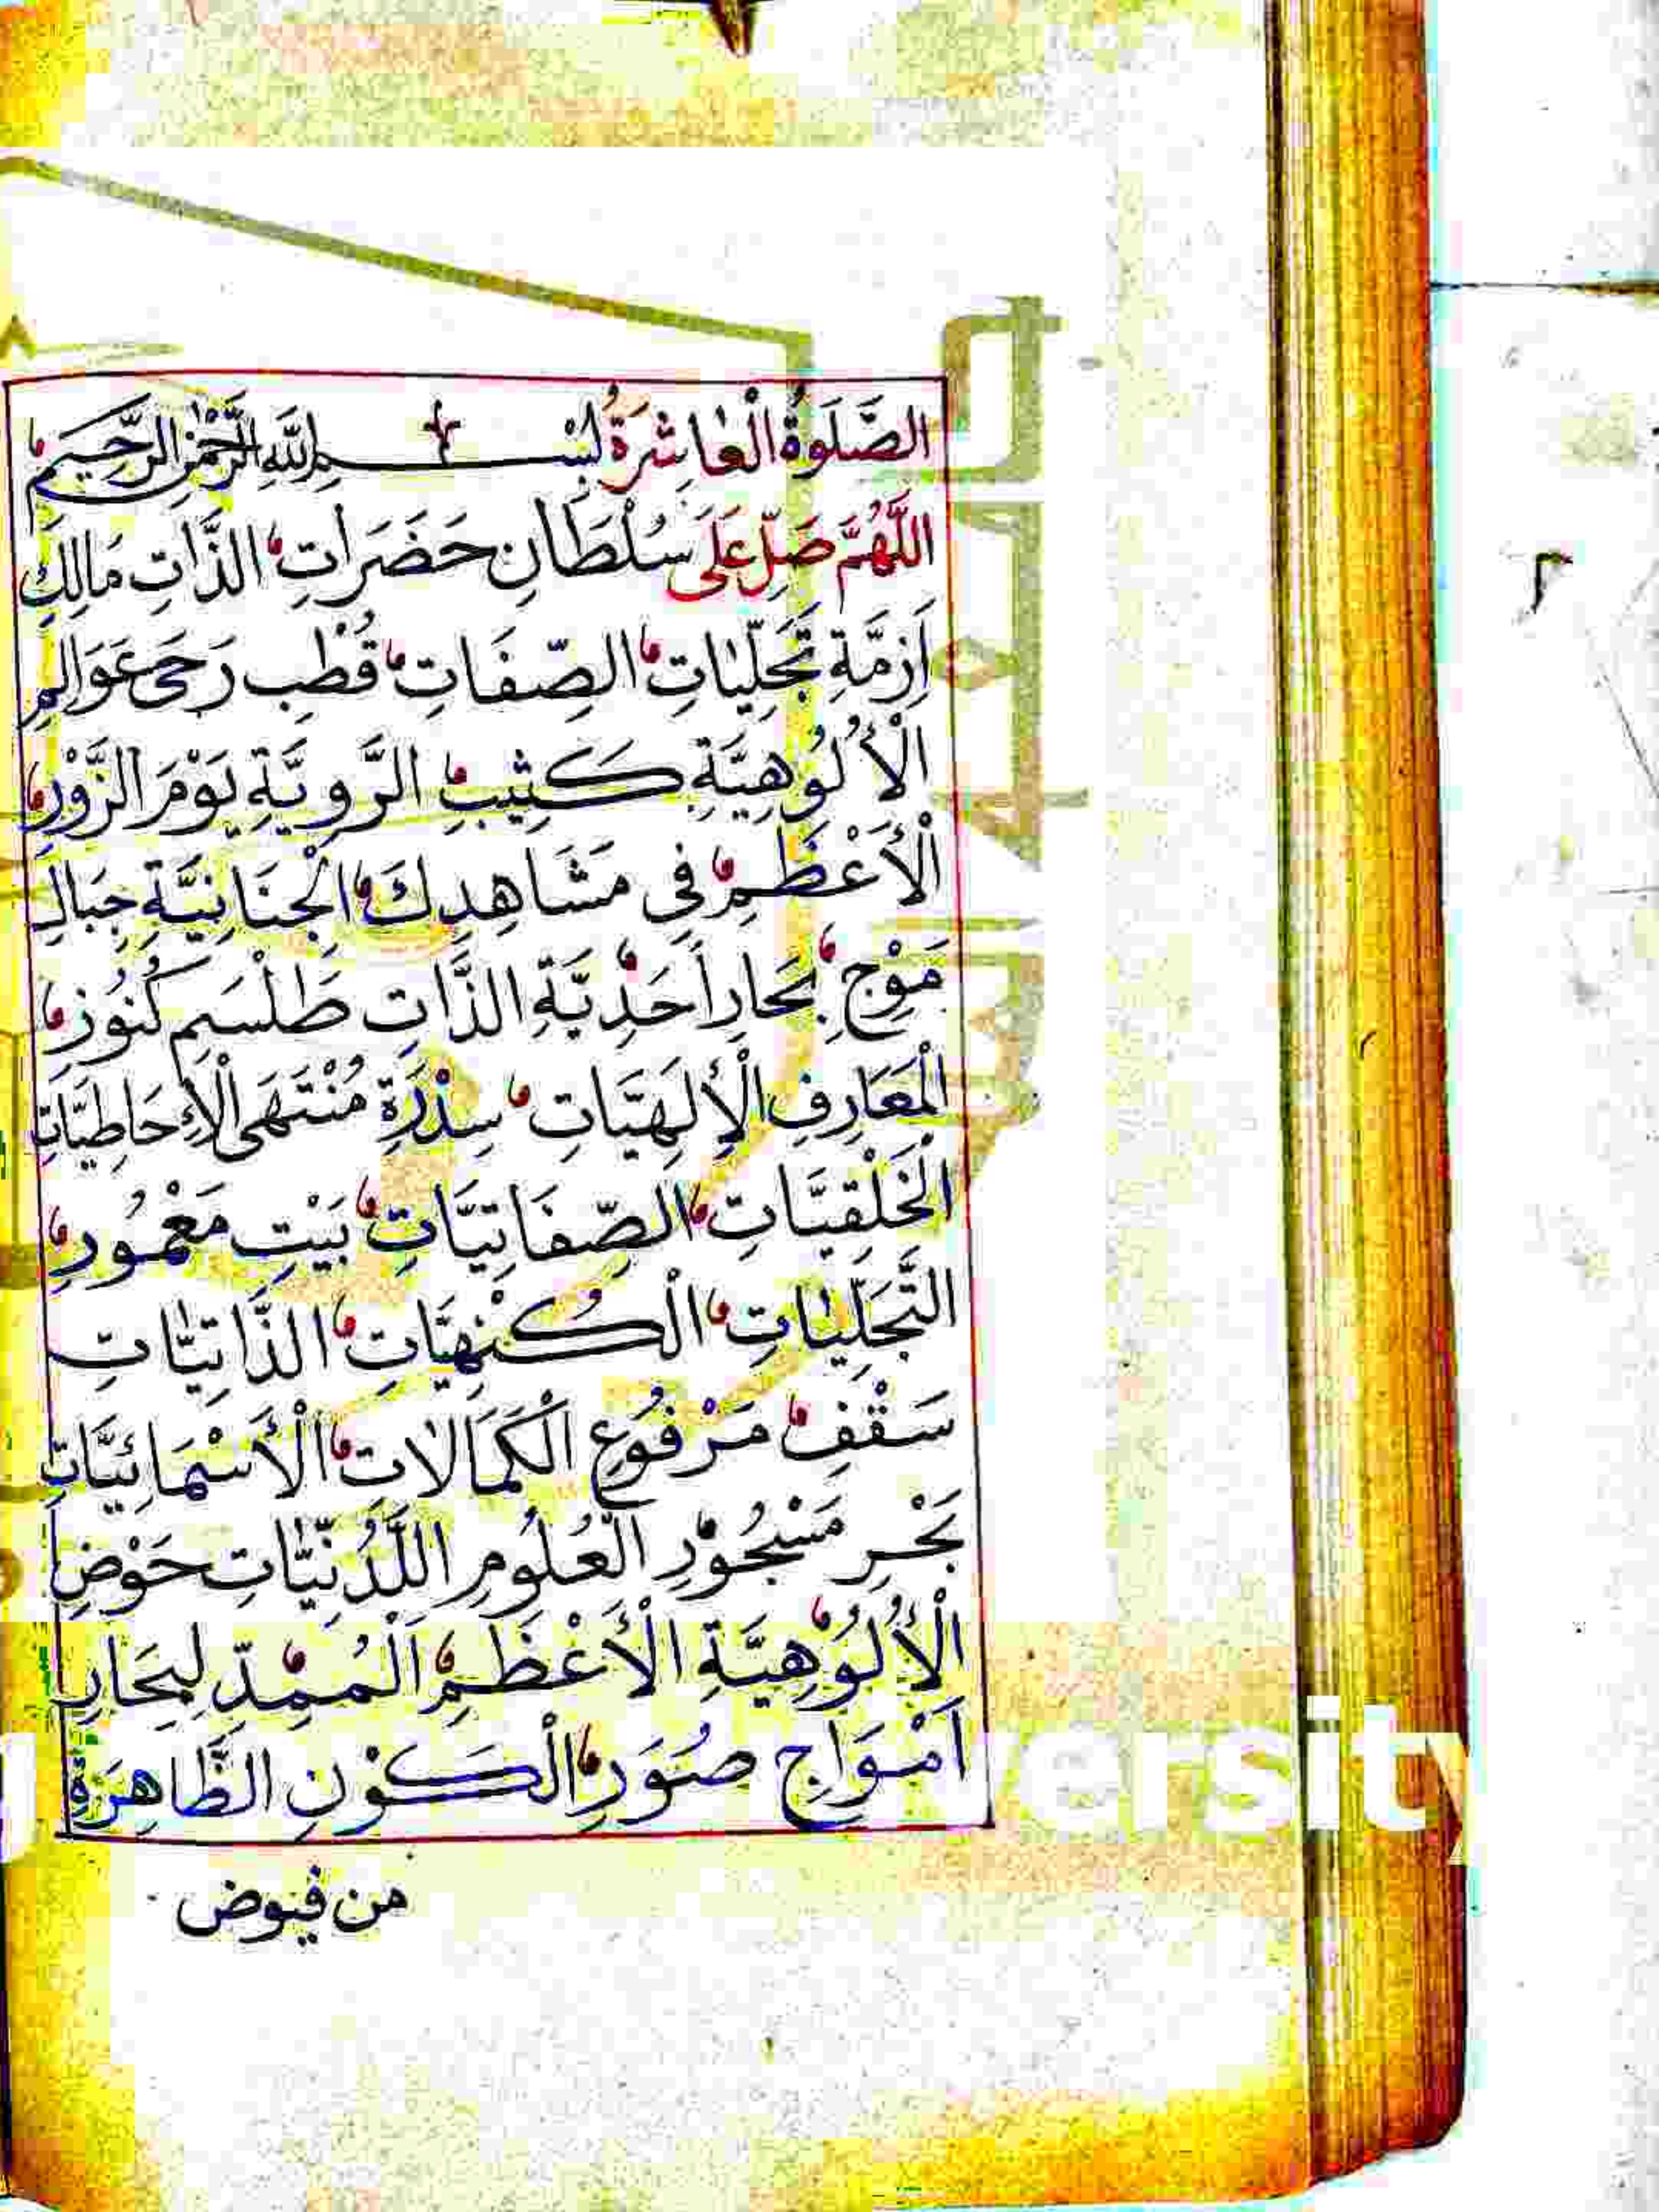 الصَّلَوةُ الْعَاشِرَةُ بِسْمِ اللَّهِ الرَّحْمٰنِ الرَّحِيمِ
اللَّهُمَّ صَلِّ عَلَى سُلْطَانِ حَضَرَاتِ الذَّاتِ مَالِكِ
اَزِمَّةِ تَجَلِّيَاتِ الصِّفَاتِ قُطْبِ رَحَى عَوَالِمِ
الْأُلُوهِيَّةِ كَثِيبِ الرَّويَّةِ يَوْمَ الزَّوْرِ
الْأَعْظَمِ فِي مَشَاهِدِكَ الْجَنَانِيَّةِ جِبَالِ
مَوْجِ بِحَارِ أَحَدِيَّةِ الذَّاتِ طَلْسَمِ كُنُوزِ
الْمَعَارِفِ الْإِلَهِيَّاتِ سِدْرَةِ مُنْتَهَى الْأِحَاطِيَّاتِ
الْخَلْقِيَّاتِ الصِّفَاتِيَّاتِ بَيْتِ مَعْمُورِ
التَّجَلِّيَاتِ الْكُنْهِيَّاتِ الذَّاتِيَّاتِ
سَقْفِ مَرْفُوعِ الْكَمَالَاتِ الْأَسْمَائِيَّاتِ
بَحْرِ مَسْجُورِ الْعُلُومِ اللَّدُنِّيَّاتِ حَوْضِ
الْأُلُوْهِيَّةِ الْأَعْظَمِ الْمُمِدِّ لِبِحَارِ
اَمْوَاجِ صُوَرِ الْكَوْنِ الظَّاهِرَةِ
من فيوض
ersity
٢